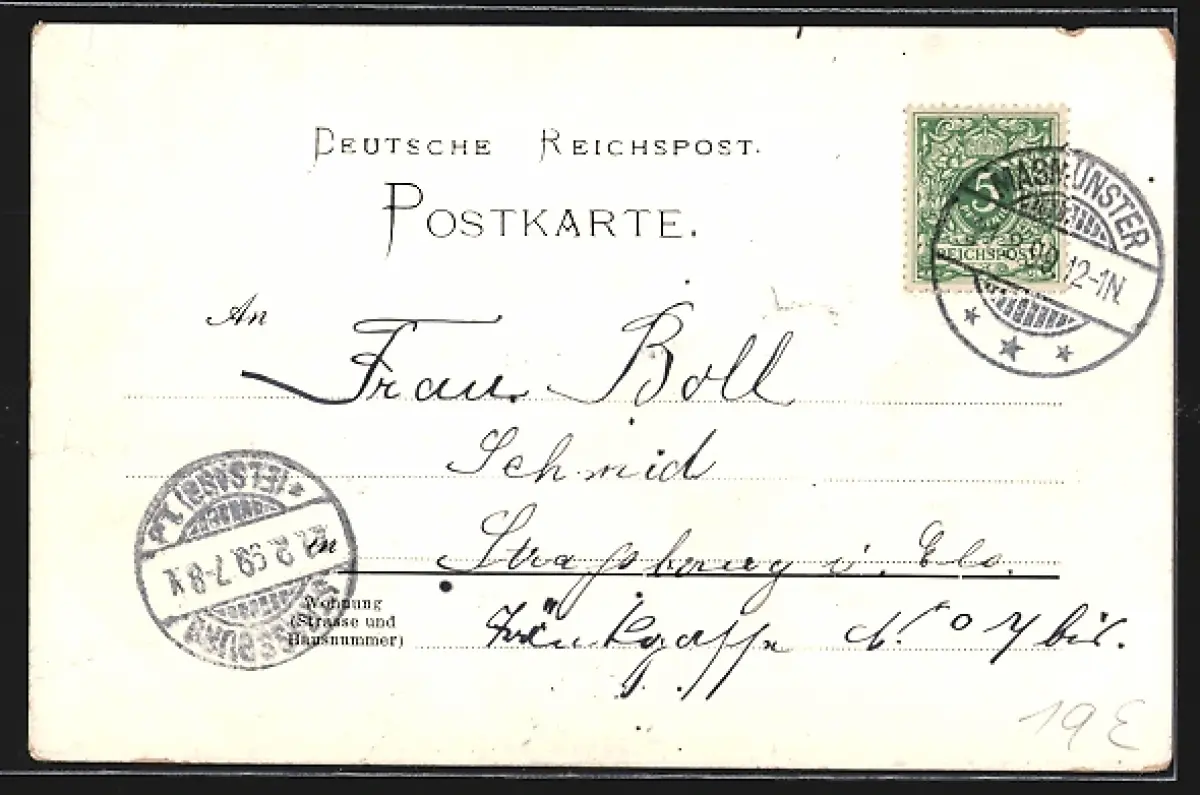 DEUTSCHE REICHSPOST.
POSTKARTE.
5
REICHSPOST
MASMÜNSTER
2.99. 12-1N.
An
Frau Boll
Schmid
in Strassburg i. Els.
Wohnung
(Strasse und
Hausnummer)
N.o 7 bis.
(ELSASS) 1.
2.99. 7-8 V.
STRASSBURG
19 E